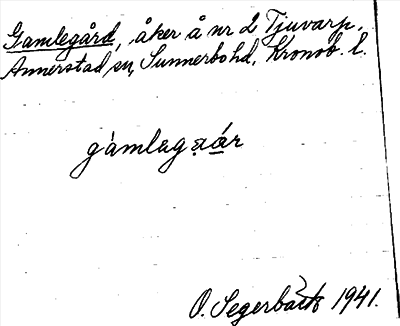 Gamlegård, åker å nr 2 Tjuvarp,
Annerstad sn, Sunnerbo hd, Kronob. l.
gàmlagạár
O. Segerbäck 1941.